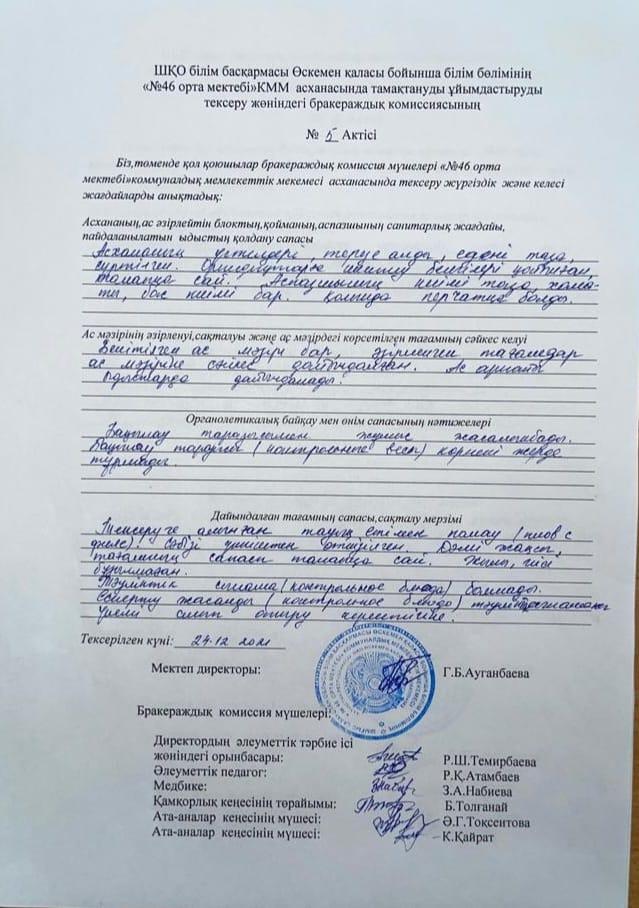 ШҚО білім басқармасы Өскемен қаласы бойынша білім бөлімінің
«№46 орта мектебі»КММ асханасында тамақтануды ұйымдастыруды
тексеру жөніндегі бракераждық комиссиясының
№ 5 Актісі
Біз,төменде қол қоюшылар бракераждық комиссия мүшелері «№46 орта
мектебі»коммуналдық мемлекеттік мекемесі асханасында тексеру жүргіздік және келесі
жағдайларды анықтадық:
Асхананың,ас әзірлейтін блоктың,қойманың,аспазшының санитарлық жағдайы,
пайдаланылатын ыдыстың қолдану сапасы
Асхананың үстелдері, терезе алды, едені таза,
сүртілген.
талапқа сай. Аспазшының киімі таза, хала-
ты, бас киімі бар. қолында перчатка болды.
Ас мәзірінің әзірленуі,сақталуы және ас мәзірдегі көрсетілген тағамның сәйкес келуі
Бекітілген ас мәзірі бар, әзірленген тағамдар
ас мәзіріне сәйкес дайындалған. Ас арнайы
ыдыстарда дайындалады.
Органолетикалық байқау мен өнім сапасының нәтижелері
Бақылау таразысымен жұмыс
Бақылау таразысы (контрольные весы) көрнекі жерде
Дайындалған тағамның сапасы,сақталу мерзімі
Тексеруге алынған тауық етімен палау (плов с
Дәмі жақсы,
тағамның сапасы талапқа сай. иісі
бұзылмаған.
Тәуліктік сынама (контрольное блюдо) болмады.
Ескерту жасалды (контрольное блюдо)
үнемі алып отыру
Тексерілген күні: 24.12 2021
Мектеп директоры: Г.Б.Ауганбаева
Бракераждық комиссия мүшелері:
Директордың әлеуметтік тәрбие ісі
жөніндегі орынбасары: Р.Ш.Темирбаева
Әлеуметтік педагог: Р.Қ.Атамбаев
Медбике: З.А.Набиева
Қамқорлық кеңесінің төрайымы: Б.Толғанай
Ата-аналар кеңесінің мүшесі: Ә.Г.Токсеитова
Ата-аналар кеңесінің мүшесі: К.Қайрат